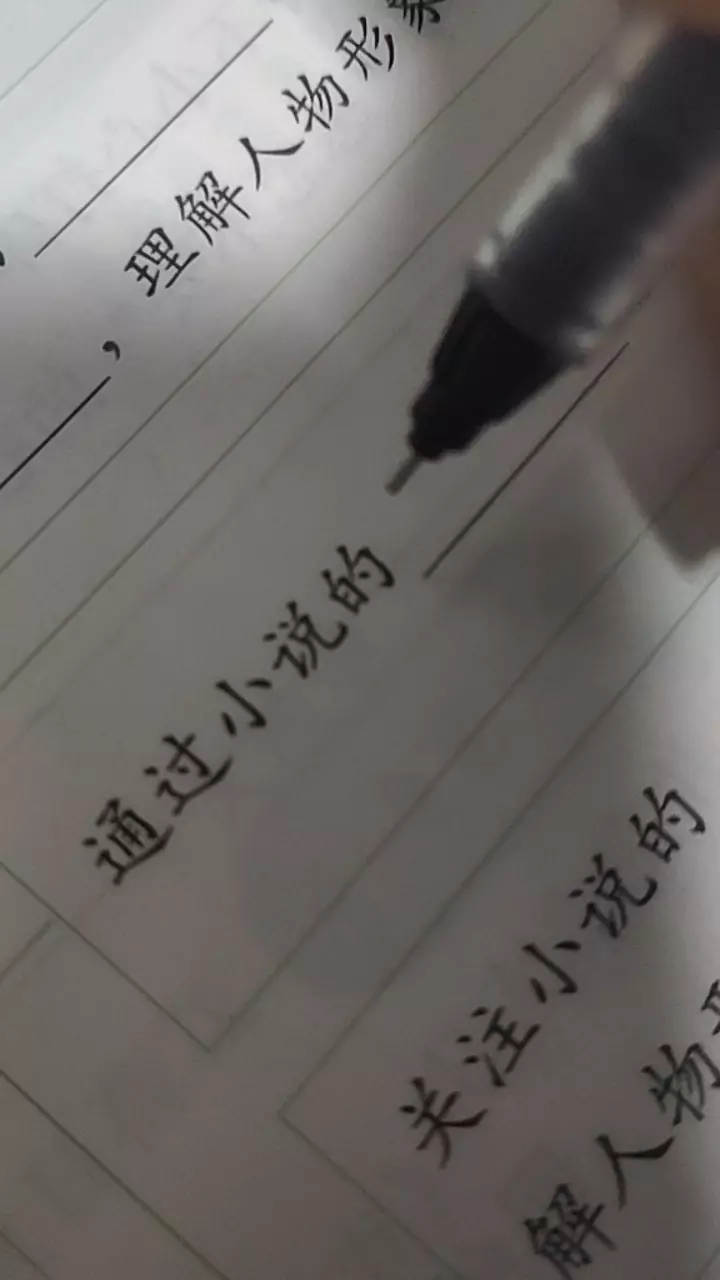 ，理解人物形象
通过小说的
关注小说的
解人物